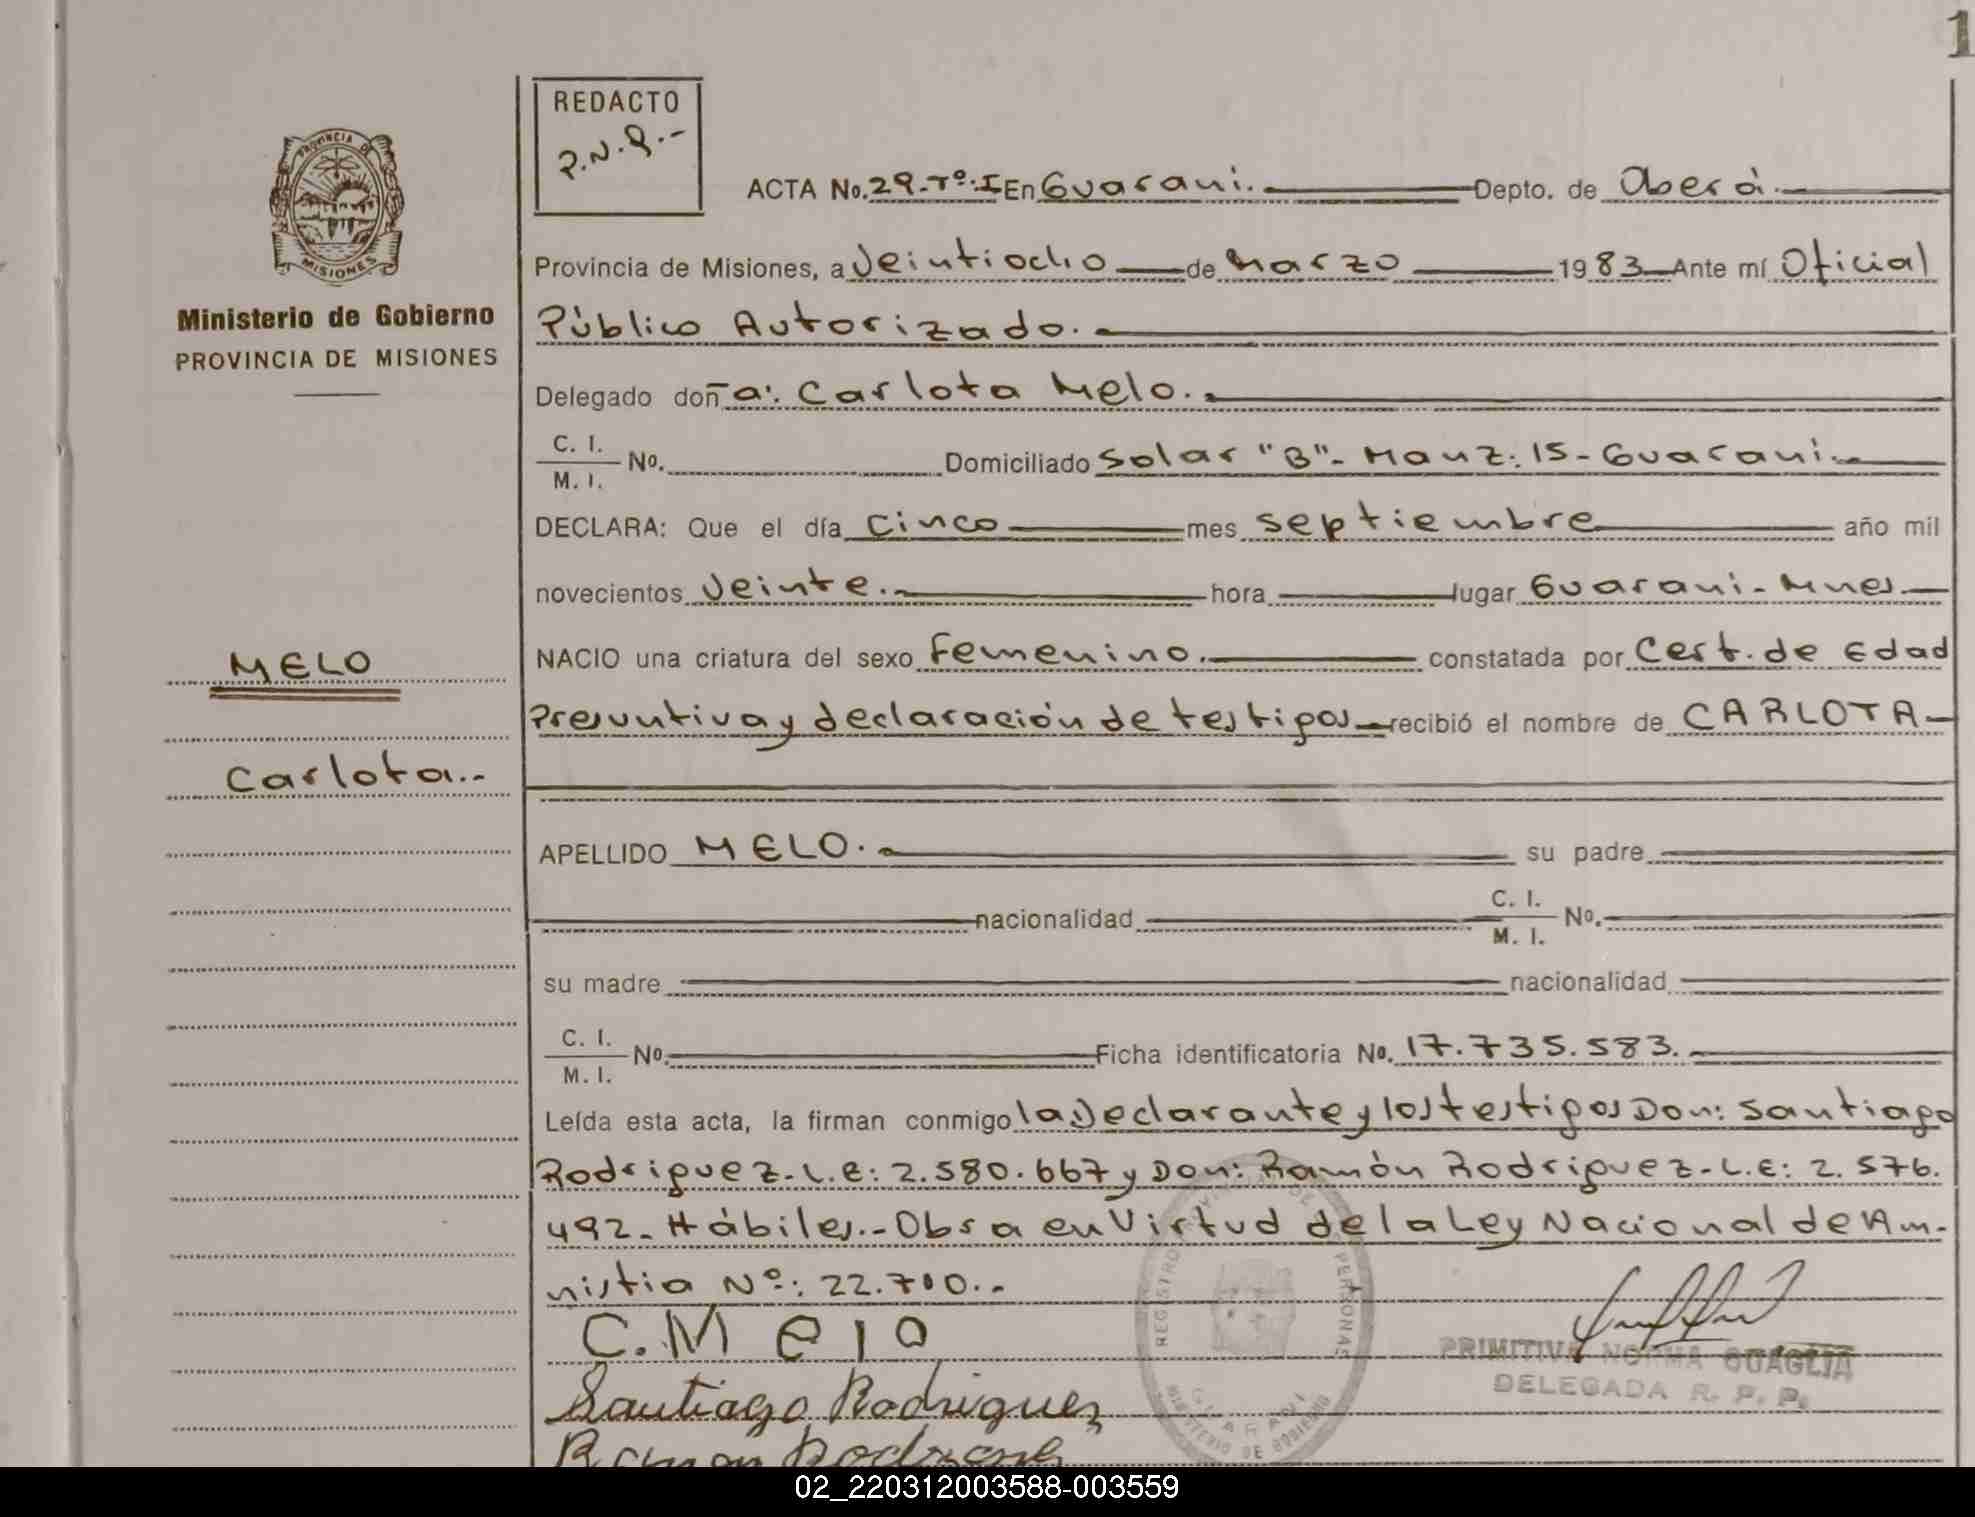 1
REDACTO
P.N.Q.-
PROVINCIA DE
MISIONES
Ministerio de Gobierno
PROVINCIA DE MISIONES
ACTA No. 29-Tº:I En Guaraní. Depto. de Oberá.
Provincia de Misiones, a Veintiocho de Marzo 1983 Ante mí Oficial
Público Autorizado.
Delegado doña: Carlota Melo.
C. I.
M. I. No. Domiciliado Solar "B"- Manz: 15- Guaraní.
DECLARA: Que el día cinco mes septiembre año mil
novecientos veinte. hora lugar Guaraní- Mnes
NACIO una criatura del sexo Femenino. constatada por Cert. de Edad
Presuntiva y declaración de testigos recibió el nombre de CARLOTA-
MELO
Carlota.-
APELLIDO MELO. su padre
nacionalidad C. I.
M. I. No.
su madre nacionalidad
C. I.
M. I. No. Ficha identificatoria No. 17.735.583.
Leída esta acta, la firman conmigo la Declarante y los testigos Don: Santiago
Rodriguez-L.E: 2.580.667 y Don: Ramón Rodriguez-L.E: 2.576.
492- Hábiles.-Obra en Virtud de la Ley Nacional de Am-
nistia Nº: 22.710.-
C. Melo
Santiago Rodriguez
Ramon Rodriguez
REGISTRO PROVINCIAL DE PERSONAS
GUARANI
MINISTERIO DE GOBIERNO
PRIMITIVA NORMA QUAGLIA
DELEGADA R. P. P.
02_220312003588-003559